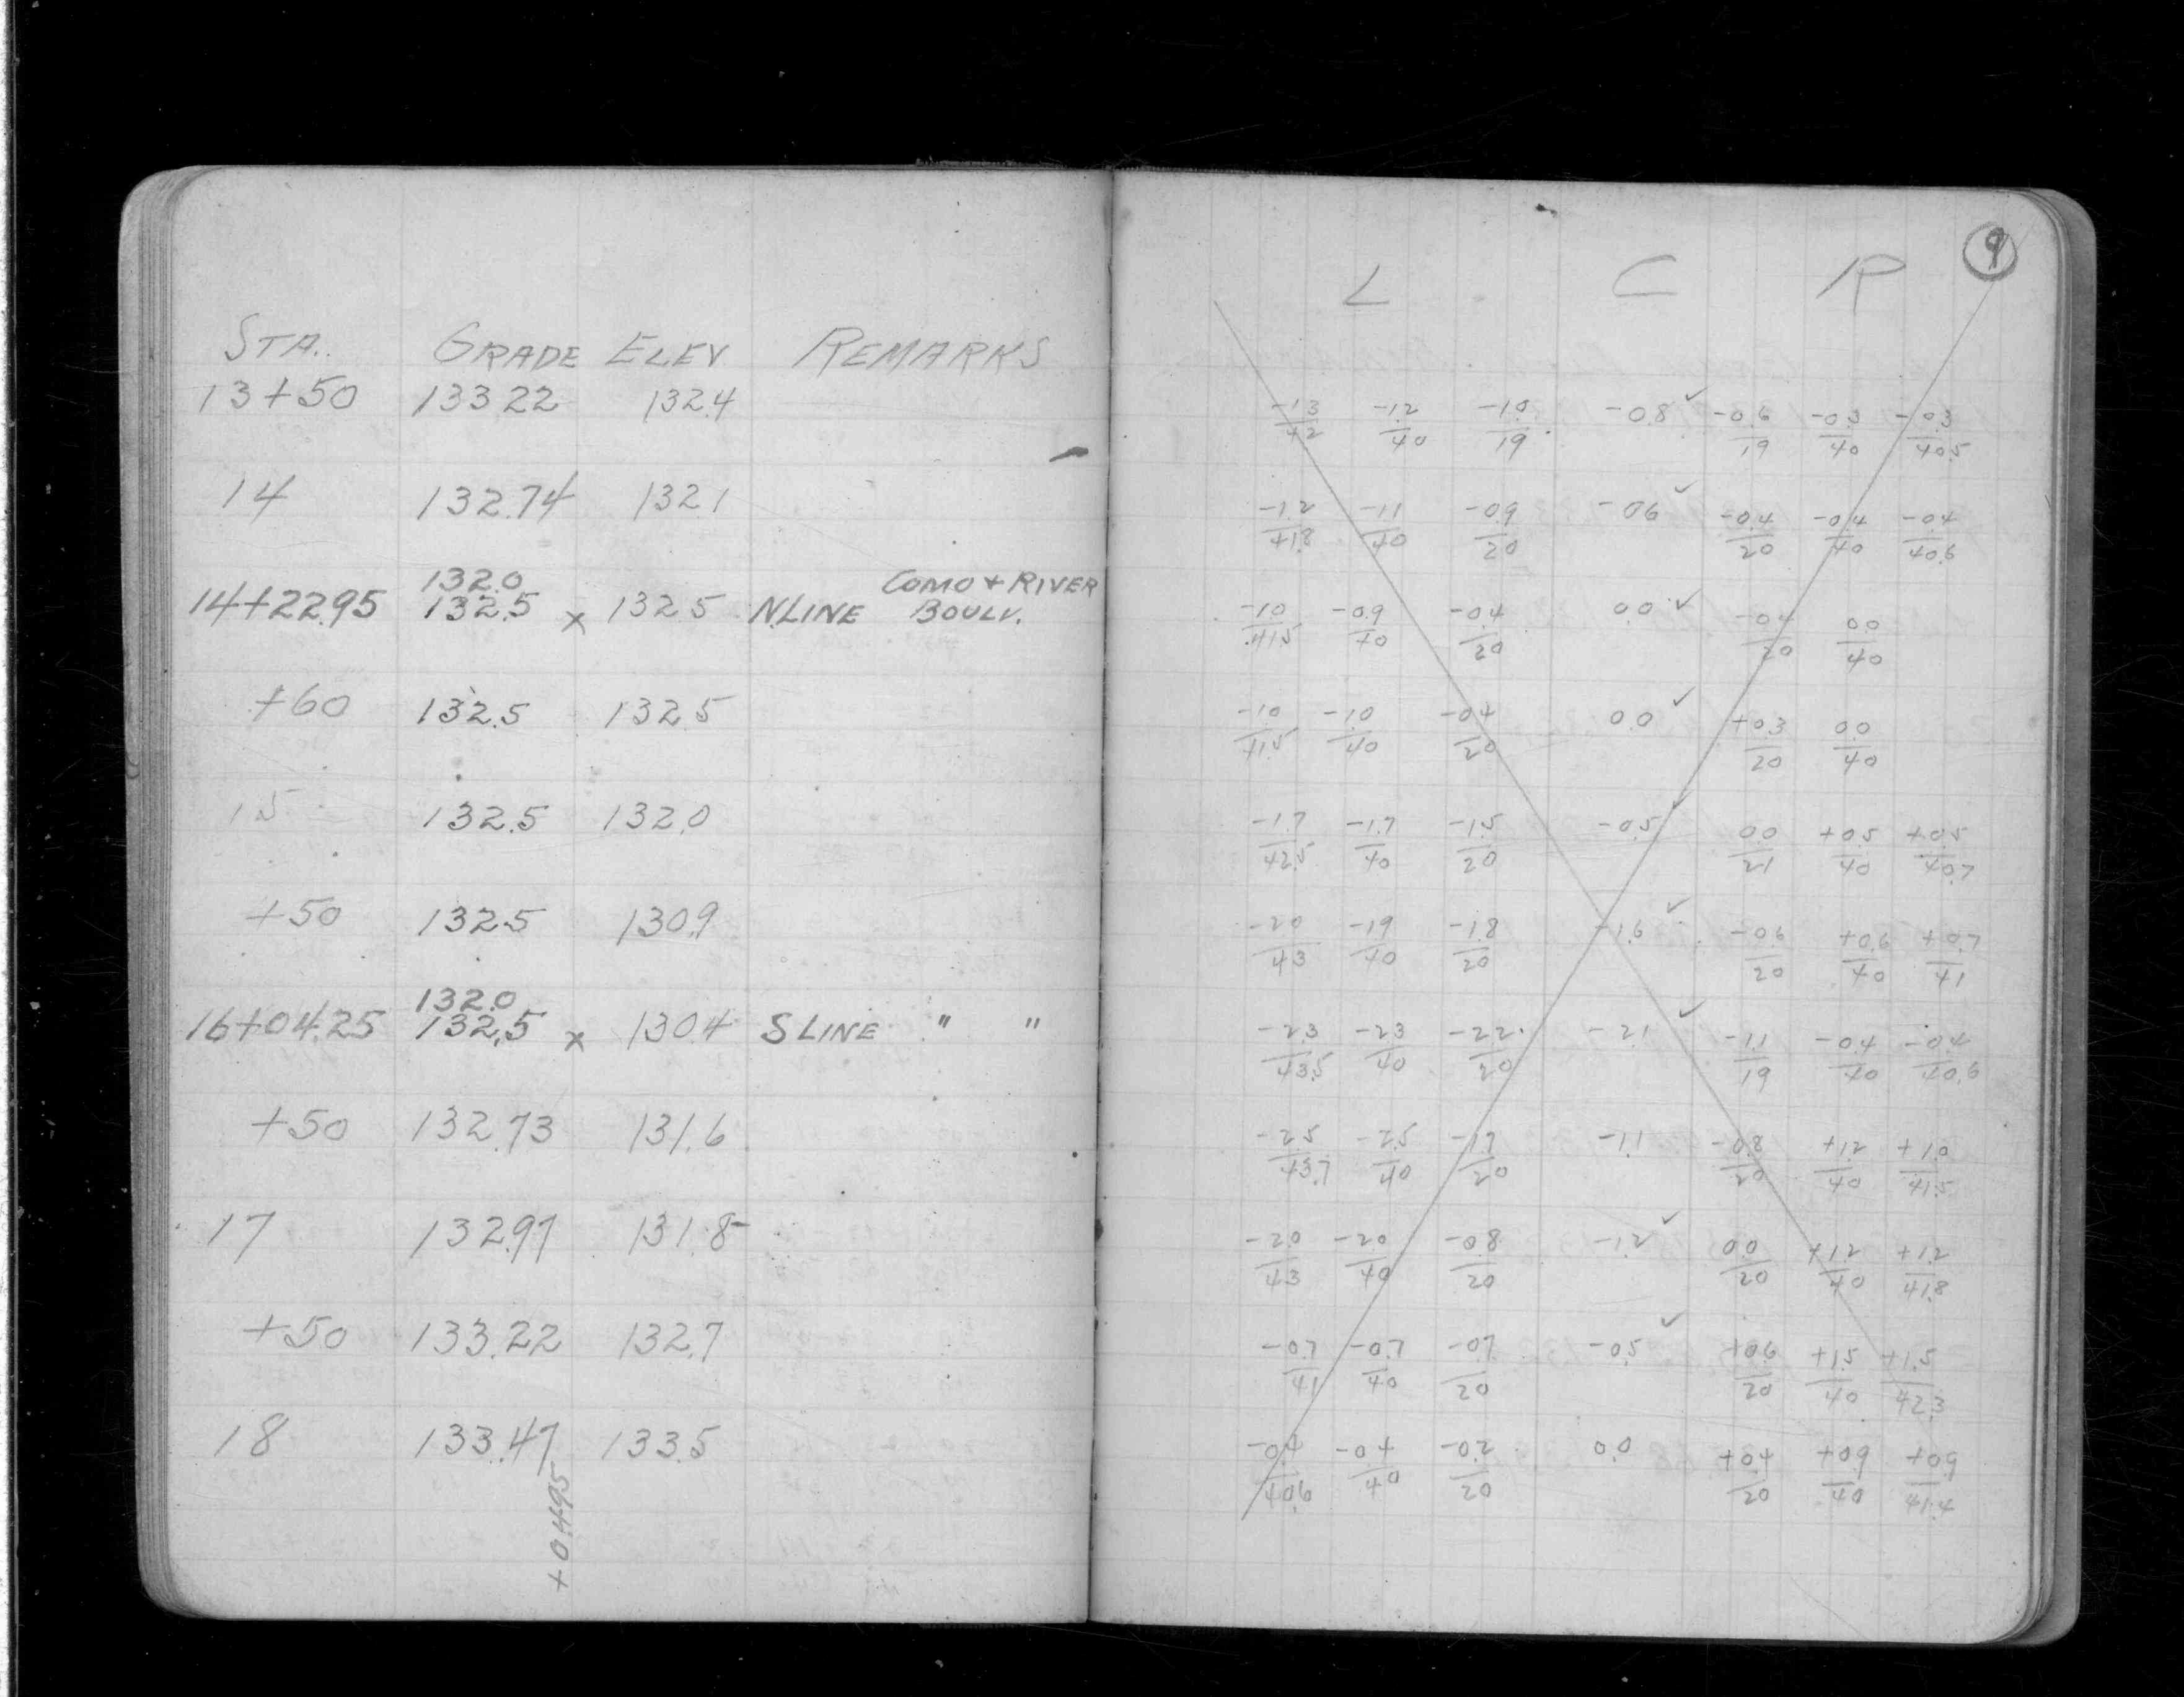 STA. GRADE ELEV REMARKS
13+50 133.22 132.4
14 132.74 132.1
132.0 COMO + RIVER
14+22.95 132.5 x 132.5 N.LINE BOULV.
+60 132.5 132.5
15 132.5 132.0
+50 132.5 130.9
132.0
16+04.25 132.5 x 130.4 S LINE " "
+50 132.73 131.6
17 132.97 131.8
+50 133.22 132.7
18 133.47 133.5
+0.495
9
L C R
-1.3 -1.2 -1.0 -0.8 ✓ -0.6 -0.3 -0.3
42 40 19 19 40 40.5
-1.2 -1.1 -0.9 -0.6 ✓ -0.4 -0.4 -0.4
41.8 40 20 20 40 40.6
-1.0 -0.9 -0.4 0.0 ✓ -0.4 0.0
41.5 40 20 20 40
-1.0 -1.0 -0.4 0.0 ✓ +0.3 0.0
41.5 40 20 20 40
-1.7 -1.7 -1.5 -0.5 ✓ 0.0 +0.5 +0.5
42.5 40 20 21 40 40.7
-2.0 -1.9 -1.8 -1.6 ✓ -0.6 +0.6 +0.7
43 40 20 20 40 41
-2.3 -2.3 -2.2 -2.1 ✓ -1.1 -0.4 -0.4
43.5 40 20 19 40 40.6
-2.5 -2.5 -1.7 -1.1 -0.8 +1.2 +1.0
43.7 40 20 20 40 41.5
-2.0 -2.0 -0.8 -1.2 ✓ 0.0 +1.2 +1.2
43 40 20 20 40 41.8
-0.7 -0.7 -0.7 -0.5 ✓ +0.6 +1.5 +1.5
41 40 20 20 40 42.3
-0.4 -0.4 -0.2 0.0 +0.4 +0.9 +0.9
40.6 40 20 20 40 41.4